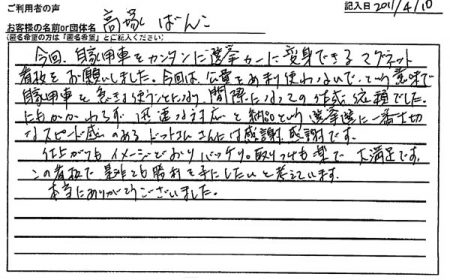 ご利用者の声
記入日 2011/4/10
お客様の名前or団体名 高塚 ばんこ
(匿名希望の方は「匿名希望」とご記入ください)
今回、自家用車をカンタンに選挙カーに変身できるマグネット
看板をお願いしました。今回は、公費をあまり使わないで、という意味で
自家用車を急きょ使うことになり、間際になっての依頼でした。
にもかかわらず、迅速な対応と納品という選挙選に一番大切
なスピード感のあるドットコムさんには感謝、感謝です。
仕上がりもイメージどおりバッチリ。取りつけも楽で大満足です。
この看板で是非とも勝利を手にしたいと考えています。
本当にありがとうございました。